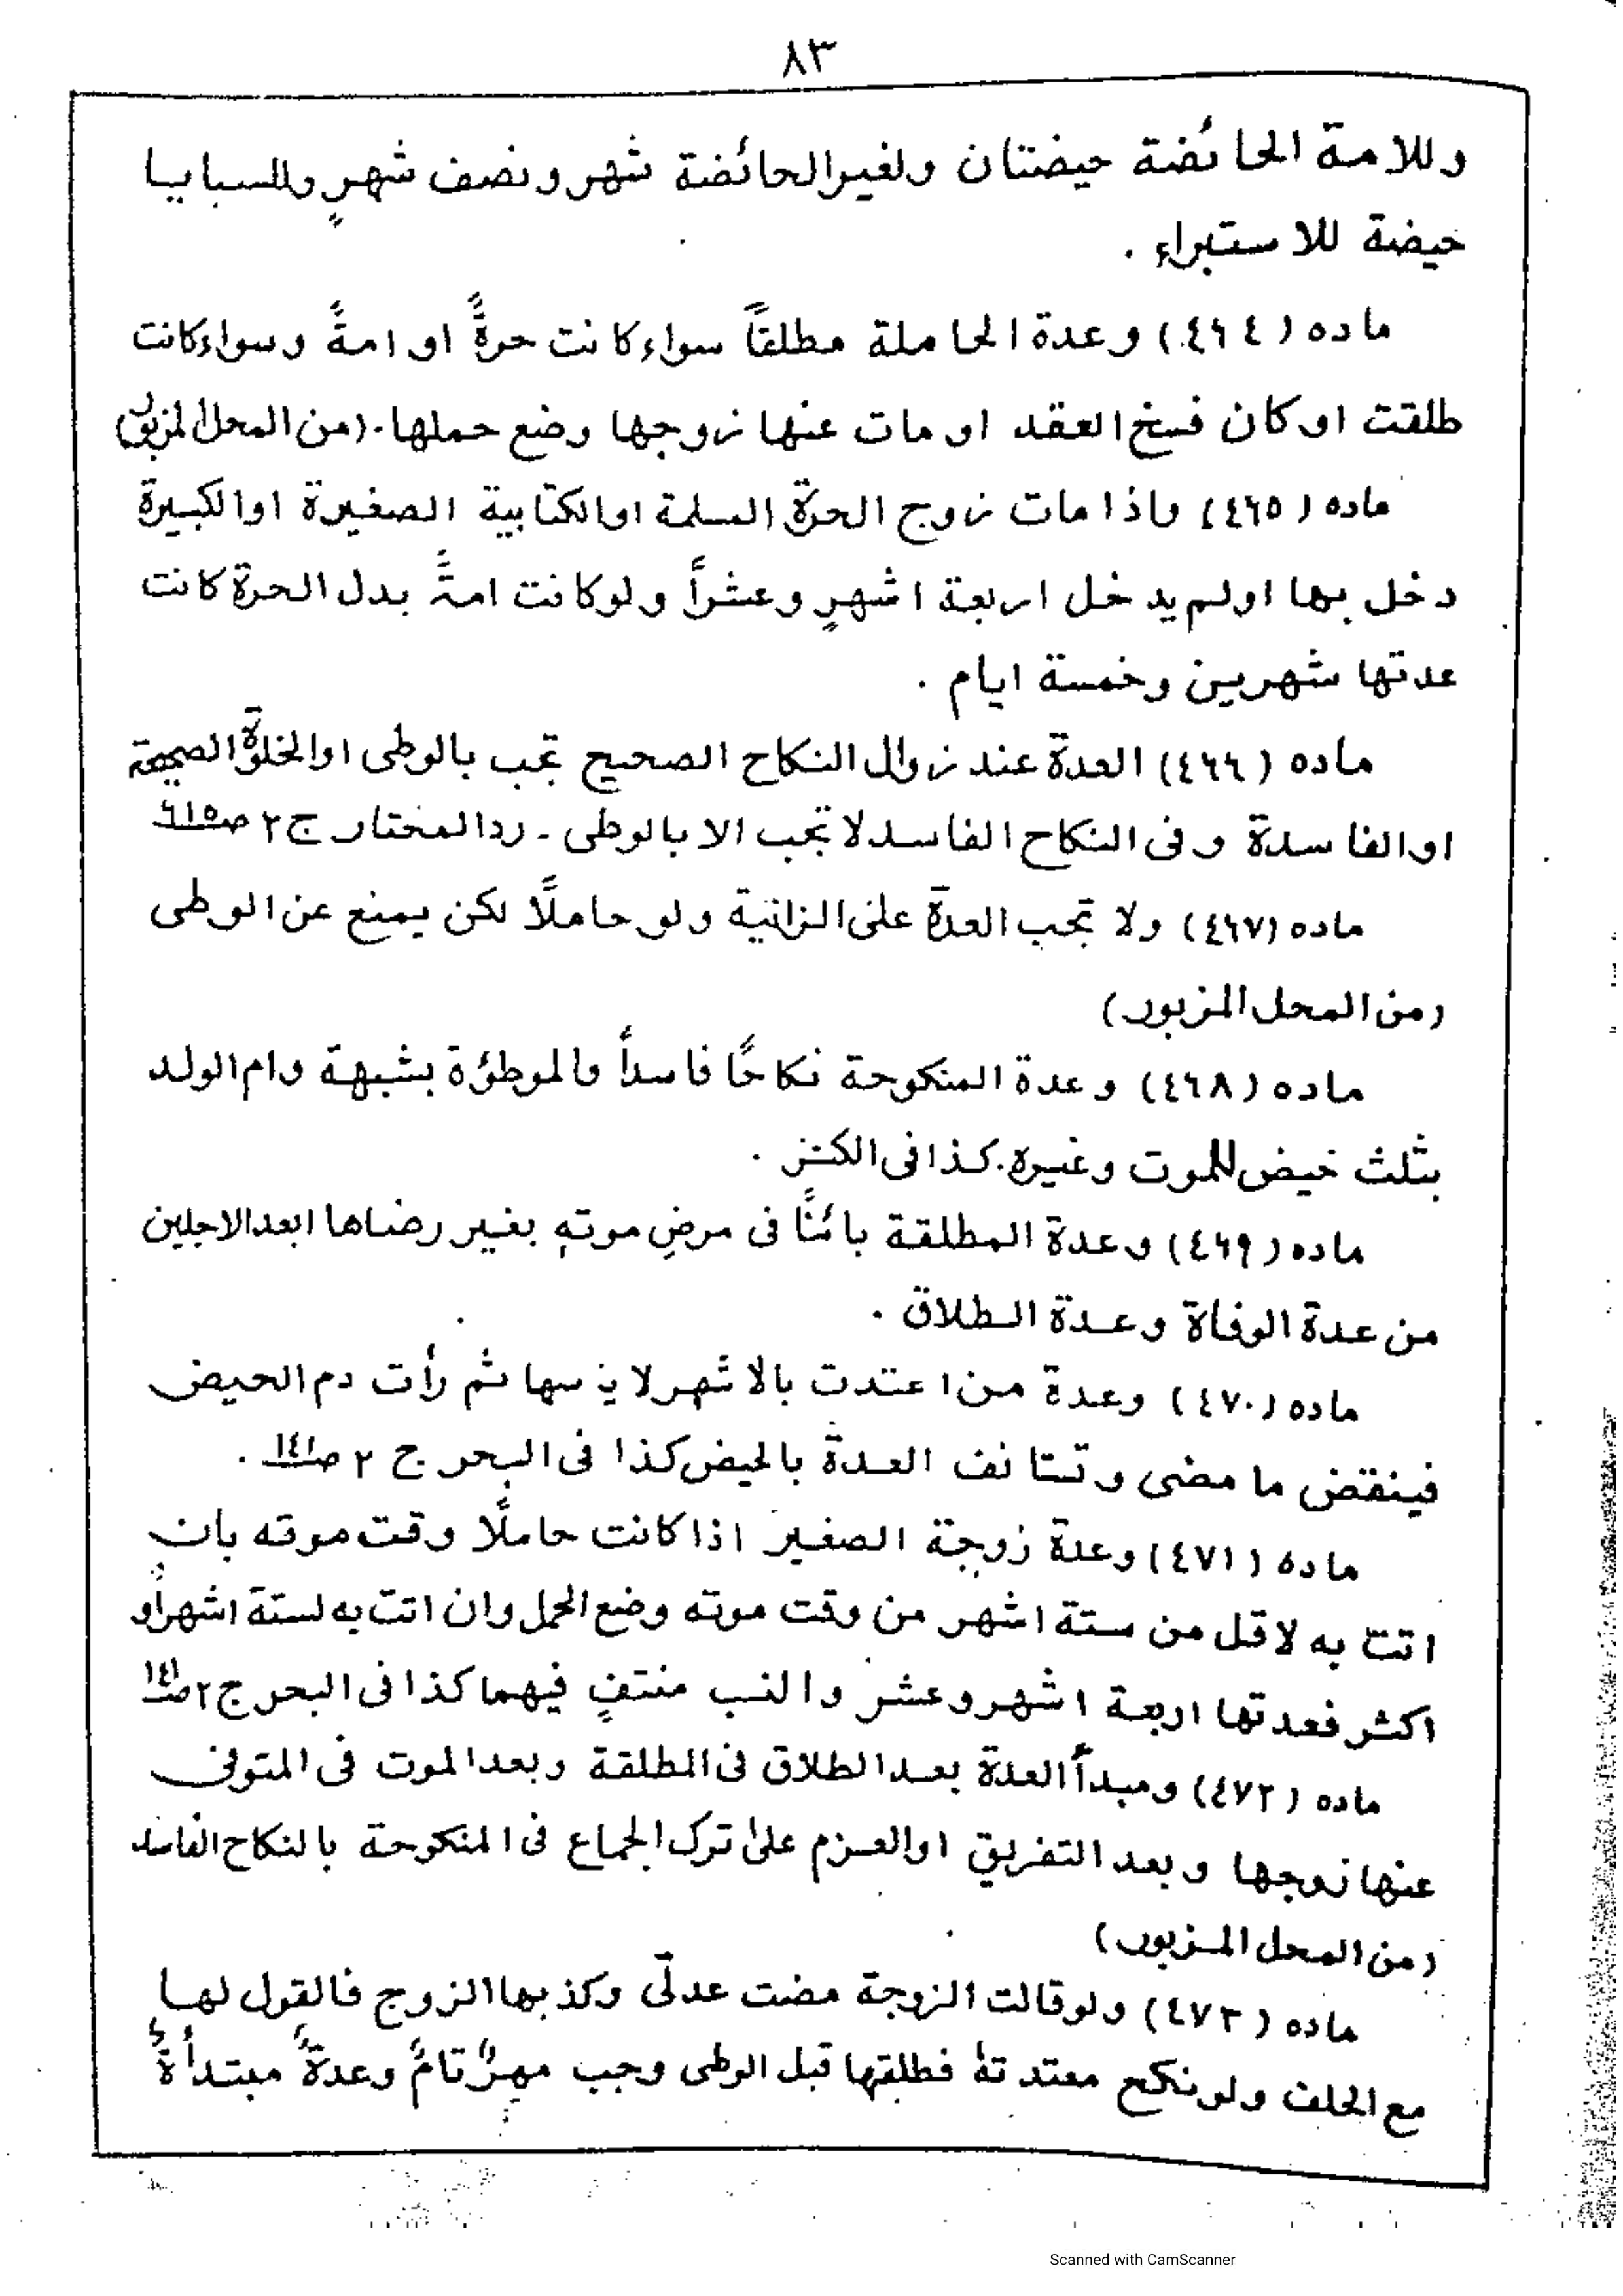 ٨٣
وللامة الحائضة حيضتان ولغير الحائضة شهر ونصف شهرٍ وللسبايا
حيضة للاستبراء .
ماده (٤٦٤) وعدة الحاملة مطلقاً سواء كانت حرةً او امةً وسواء كانت
طلقت او كان فسخ العقد او مات عنها زوجها وضع حملها. (من المحل المزبور)
ماده (٤٦٥) واذا مات زوج الحرة المسلمة او الكتابية الصغيرة او الكبيرة
دخل بها او لم يدخل اربعة اشهرٍ وعشراً ولو كانت امةً بدل الحرة كانت
عدتها شهرين وخمسة ايام .
ماده (٤٦٦) العدة عند زوال النكاح الصحيح تجب بالوطى او الخلوة الصحيحة
او الفاسدة وفى النكاح الفاسد لا تجب الا بالوطى ـ رد المختار ج ٢ ص٦١٥
ماده (٤٦٧) ولا تجب العدة على الزانية ولو حاملًا لكن يمنع عن الوطى
(من المحل المزبور)
ماده (٤٦٨) وعدة المنكوحة نكاحًا فاسداً والموطؤة بشبهة وام الولد
بثلث خيض للموت وغيره. كذا فى الكنز .
ماده (٤٦٩) وعدة المطلقة بائنًا فى مرضِ موتهِ بغير رضاها ابعد الاجلين
من عدة الوفاة وعدة الطلاق .
ماده (٤٧٠) وعدة من اعتدت بالاشهر لائسها ثم رأت دم الحيض
فينقض ما مضى وتستانف العدة بالحيض كذا فى البحر ج ٢ ص١٤١ .
ماده (٤٧١) وعدة زوجة الصغير اذا كانت حاملًا وقت موته بان
اتت به لاقل من ستة اشهر من وقت موته وضع الحمل وان اتت به لستة اشهر او
اكثر فعدتها اربعة اشهر وعشر والنسب منتفٍ فيهما كذا فى البحر ج ٢ ص١٤١
ماده (٤٧٢) ومبدأ العدة بعد الطلاق فى المطلقة وبعد الموت فى المتوفى
عنها زوجها وبعد التفريق او العزم على ترك الجماع فى المنكوحة بالنكاح الفاسد
(من المحل المزبور)
ماده (٤٧٣) ولو قالت الزوجة مضت عدتى وكذبها الزوج فالقول لها
مع الحلف ولو نكح معتدته فطلقها قبل الوطى وجب مهرٌ تامٌ وعدةٌ مبتدأةٌ
Scanned with CamScanner